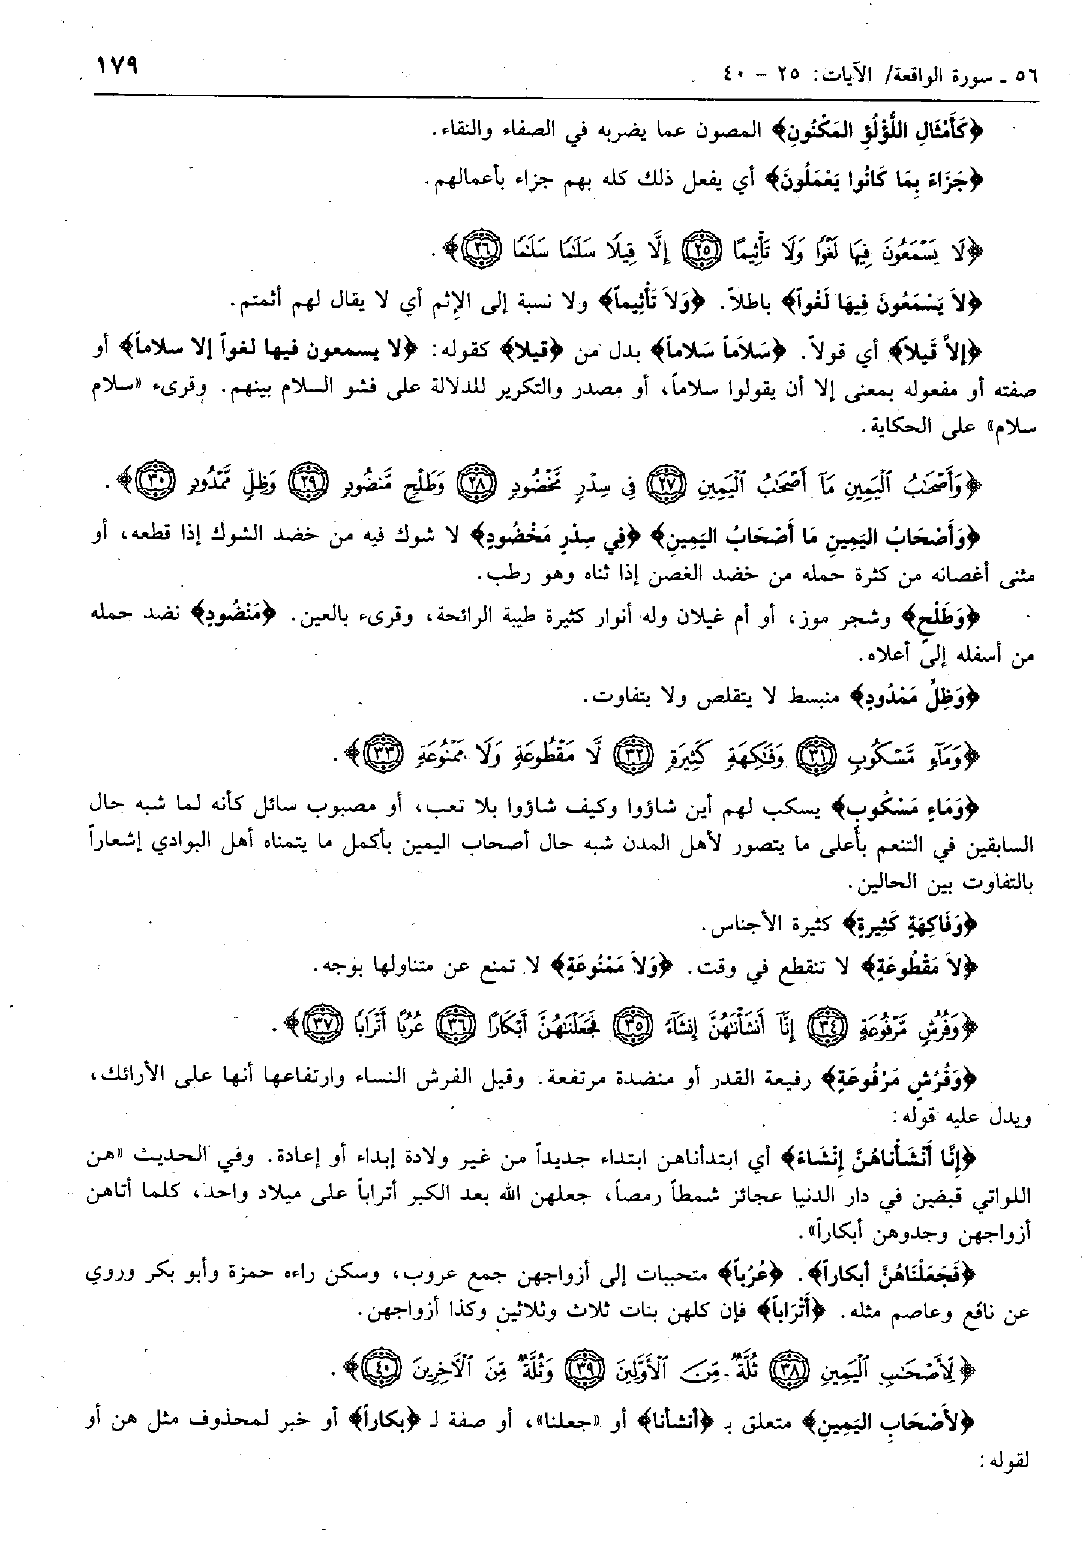 ٥٦ ـ سورة الواقعة/ الآيات: ٢٥ - ٤٠
١٧٩
﴿كَأَمْثَالِ اللُّؤْلُؤِ المَكْنُونِ﴾ المصون عما يضربه في الصفاء والنقاء.
﴿جَزَاءً بِمَا كَانُوا يَعْمَلُونَ﴾ أي يفعل ذلك كله بهم جزاء بأعمالهم.
﴿لَا يَسْمَعُونَ فِيهَا لَغْوًا وَلَا تَأْثِيمًا ٢٥ إِلَّا قِيلًا سَلَـٰمًا سَلَـٰمًا ٢٦﴾.
﴿لاَ يَسْمَعُونَ فِيهَا لَغْواً﴾ باطلاً. ﴿وَلاَ تَأْثِيماً﴾ ولا نسبة إلى الإثم أي لا يقال لهم أثمتم.
﴿إِلاَّ قِيلاً﴾ أي قولاً. ﴿سَلاَماً سَلاَماً﴾ بدل من ﴿قيلا﴾ كقوله: ﴿لا يسمعون فيها لغواً إلا سلاماً﴾ أو
صفته أو مفعوله بمعنى إلا أن يقولوا سلاماً، أو مصدر والتكرير للدلالة على فشو السلام بينهم. وقرىء «سلام
سلام» على الحكاية.
﴿وَأَصْحَـٰبُ ٱلْيَمِينِ مَآ أَصْحَـٰبُ ٱلْيَمِينِ ٢٧ فِى سِدْرٍ مَّخْضُودٍ ٢٨ وَطَلْحٍ مَّنضُودٍ ٢٩ وَظِلٍّ مَّمْدُودٍ ٣٠﴾.
﴿وَأَصْحَابُ اليَمِينِ مَا أَصْحَابُ اليَمِينِ﴾ ﴿فِي سِدْرٍ مَخْضُودٍ﴾ لا شوك فيه من خضد الشوك إذا قطعه، أو
مثنى أغصانه من كثرة حمله من خضد الغصن إذا ثناه وهو رطب.
﴿وَطَلْحٍ﴾ وشجر موز، أو أم غيلان وله أنوار كثيرة طيبة الرائحة، وقرىء بالعين. ﴿مَنْضُودٍ﴾ نضد حمله
من أسفله إلى أعلاه.
﴿وَظِلٍّ مَمْدُودٍ﴾ منبسط لا يتقلص ولا يتفاوت.
﴿وَمَآءٍ مَّسْكُوبٍ ٣١ وَفَـٰكِهَةٍ كَثِيرَةٍ ٣٢ لَّا مَقْطُوعَةٍ وَلَا مَمْنُوعَةٍ ٣٣﴾.
﴿وَمَاءٍ مَسْكُوبٍ﴾ يسكب لهم أين شاؤوا وكيف شاؤوا بلا تعب، أو مصبوب سائل كأنه لما شبه حال
السابقين في التنعم بأعلى ما يتصور لأهل المدن شبه حال أصحاب اليمين بأكمل ما يتمناه أهل البوادي إشعاراً
بالتفاوت بين الحالين.
﴿وَفَاكِهَةٍ كَثِيرةٍ﴾ كثيرة الأجناس.
﴿لاَ مَقْطُوعَةٍ﴾ لا تنقطع في وقت. ﴿وَلاَ مَمْنُوعَةٍ﴾ لا تمنع عن متناولها بوجه.
﴿وَفُرُشٍ مَّرْفُوعَةٍ ٣٤ إِنَّآ أَنشَأْنَـٰهُنَّ إِنشَآءً ٣٥ فَجَعَلْنَـٰهُنَّ أَبْكَارًا ٣٦ عُرُبًا أَتْرَابًا ٣٧﴾.
﴿وَفُرُشٍ مَرْفُوعَةٍ﴾ رفيعة القدر أو منضدة مرتفعة. وقيل الفرش النساء وارتفاعها أنها على الأرائك،
ويدل عليه قوله:
﴿إِنَّا أَنْشَأْنَاهُنَّ إِنْشَاءً﴾ أي ابتدأناهن ابتداء جديداً من غير ولادة إبداء أو إعادة. وفي الحديث «هن
اللواتي قبضن في دار الدنيا عجائز شمطاً رمصاً، جعلهن الله بعد الكبر أتراباً على ميلاد واحد، كلما أتاهن
أزواجهن وجدوهن أبكاراً».
﴿فَجَعَلْنَاهُنَّ أبكاراً﴾. ﴿عُرُباً﴾ متحببات إلى أزواجهن جمع عروب، وسكن راءه حمزة وأبو بكر وروي
عن نافع وعاصم مثله. ﴿أَتْرَاباً﴾ فإن كلهن بنات ثلاث وثلاثين وكذا أزواجهن.
﴿لِّأَصْحَـٰبِ ٱلْيَمِينِ ٣٨ ثُلَّةٌ مِّنَ ٱلْأَوَّلِينَ ٣٩ وَثُلَّةٌ مِّنَ ٱلْـَٔاخِرِينَ ٤٠﴾.
﴿لأَصْحَابِ اليَمِينِ﴾ متعلق بـ ﴿أنشأنا﴾ أو «جعلنا»، أو صفة لـ ﴿بكاراً﴾ أو خبر لمحذوف مثل هن أو
لقوله: